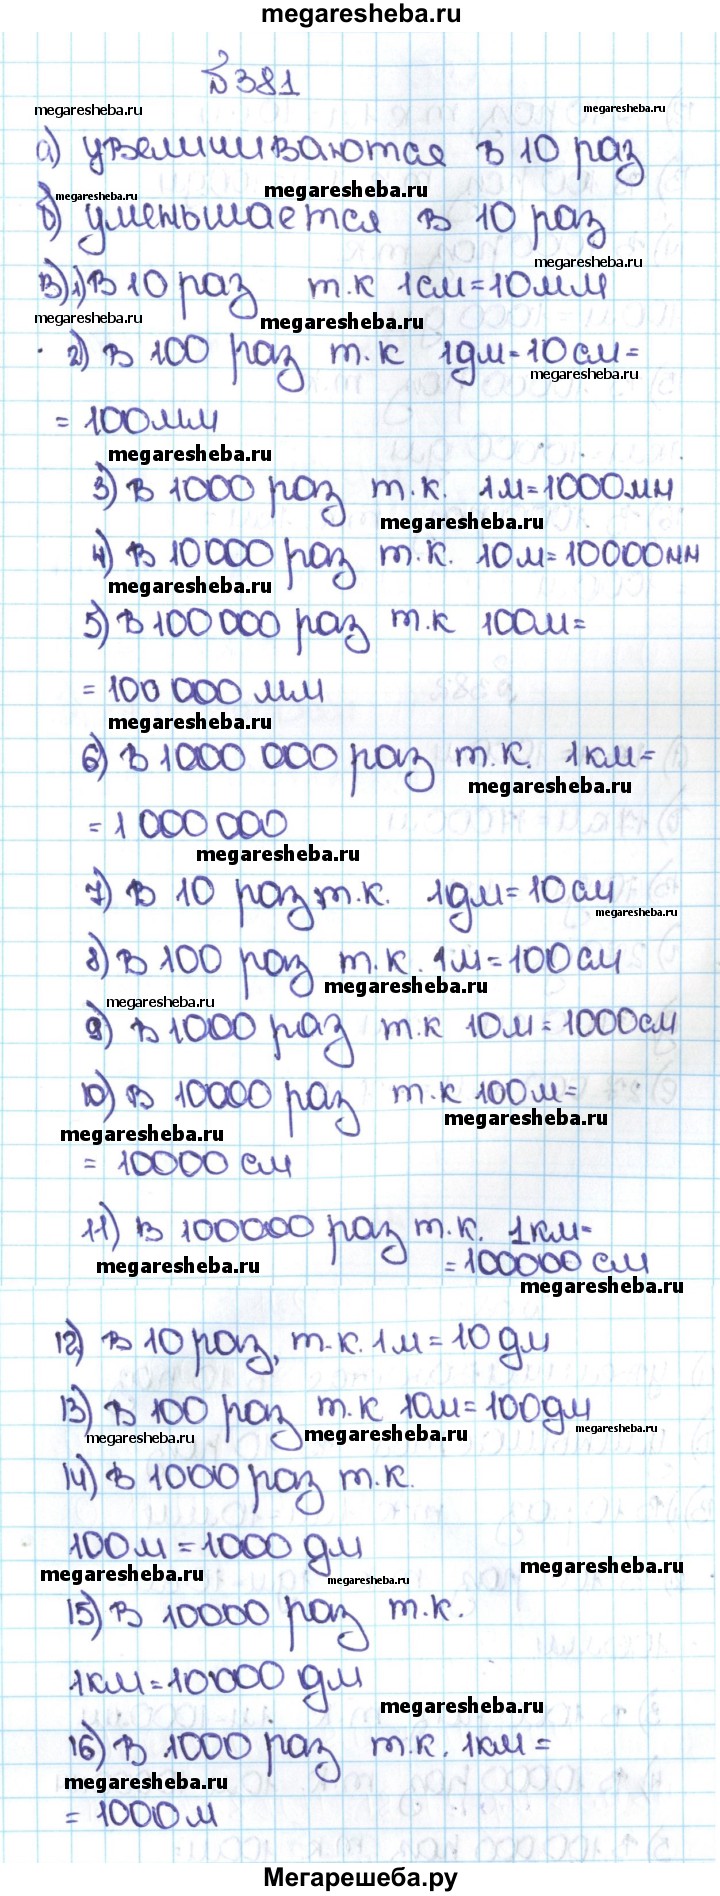 megaresheba.ru
№381
megaresheba.ru megaresheba.ru
а) увеличиваются в 10 раз
megaresheba.ru megaresheba.ru
б) уменьшается в 10 раз
megaresheba.ru
в) 1) в 10 раз т.к 1см=10мм
megaresheba.ru megaresheba.ru
2) в 100 раз т.к 1дм=10см=
megaresheba.ru
=100мм
megaresheba.ru
3) в 1000 раз т.к. 1м=1000мм
megaresheba.ru
4) в 10000 раз т.к. 10м=10000мм
megaresheba.ru
5) в 100 000 раз т.к 100м=
=100 000 мм
megaresheba.ru
6) в 1000 000 раз т.к. 1км=
megaresheba.ru
=1 000 000
megaresheba.ru
7) в 10 раз т.к. 1дм=10см
megaresheba.ru
8) в 100 раз т.к. 1м=100см
megaresheba.ru
megaresheba.ru
9) в 1000 раз т.к 10м=1000см
10) в 10000 раз т.к 100м=
megaresheba.ru
megaresheba.ru
=10000 см
11) в 100000 раз т.к. 1км=
=100000 см
megaresheba.ru megaresheba.ru
12) в 10 раз, т.к. 1м=10дм
13) в 100 раз т.к 10м=100дм
megaresheba.ru megaresheba.ru megaresheba.ru
14) в 1000 раз т.к.
100м=1000 дм
megaresheba.ru megaresheba.ru megaresheba.ru
15) в 10000 раз т.к.
1км=10000 дм
megaresheba.ru
16) в 1000 раз т.к. 1км=
megaresheba.ru
=1000м
Мегарешеба.ру